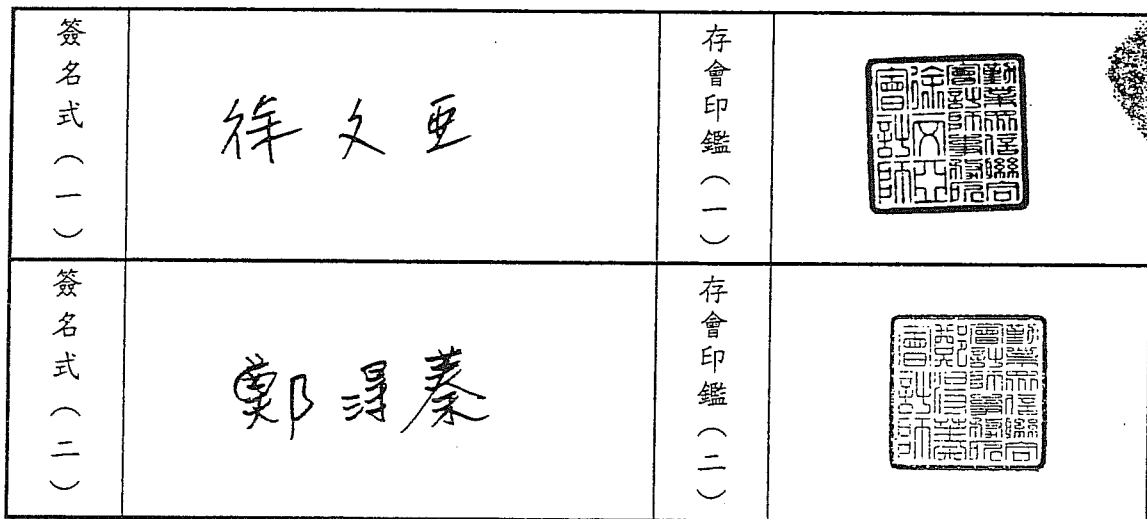 簽名式（一）
徐文亞
存會印鑑（一）
勤業眾信聯合
會計師事務所
徐文亞
會計師
簽名式（二）
鄭得蓁
存會印鑑（二）
勤業眾信聯合
會計師事務所
鄭得蓁
會計師